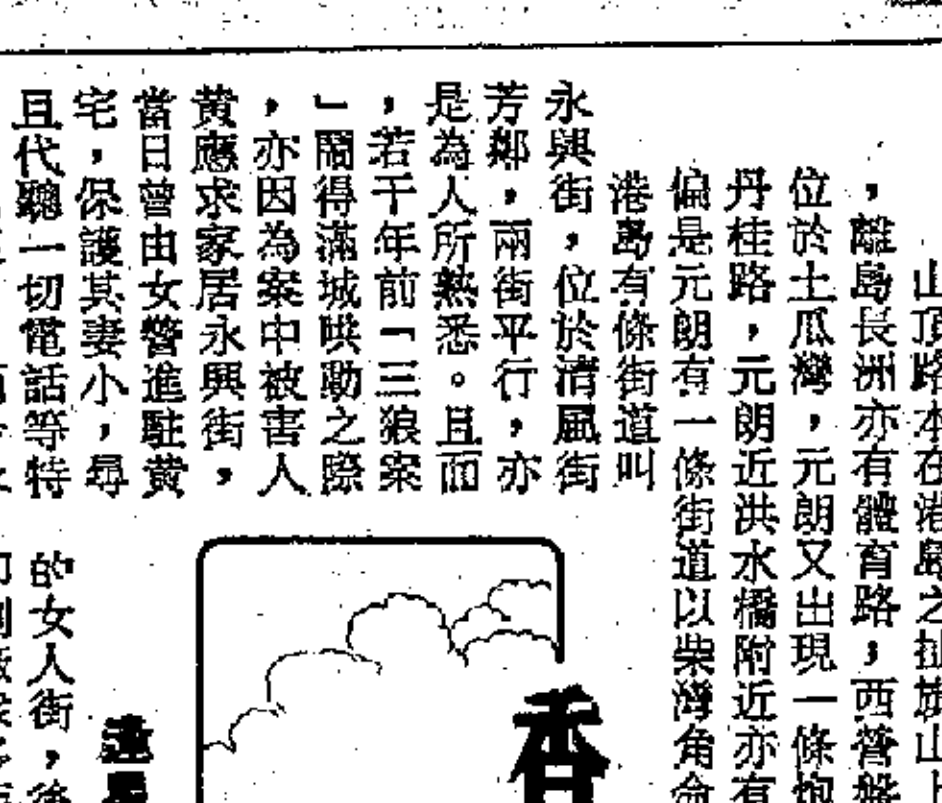 山頂路本在港島之扯旗山上
，離島長洲亦有體育路；西營盤
位於土瓜灣，元朗又出現一條炮
丹桂路，元朗近洪水橋附近亦有
偏是元朗有一條街道以柴灣角命
港島有條街道叫
永興街，位於清風街
芳鄰，兩街平行，亦
是為人所熟悉。且而
，若干年前「三狼案
」鬧得滿城哄動之際
，亦因為案中被害人
黃應求家居永興街，
當日曾由女警進駐黃
宅，保護其妻小，尋
且代聽一切電話等特
香
的女人街，後